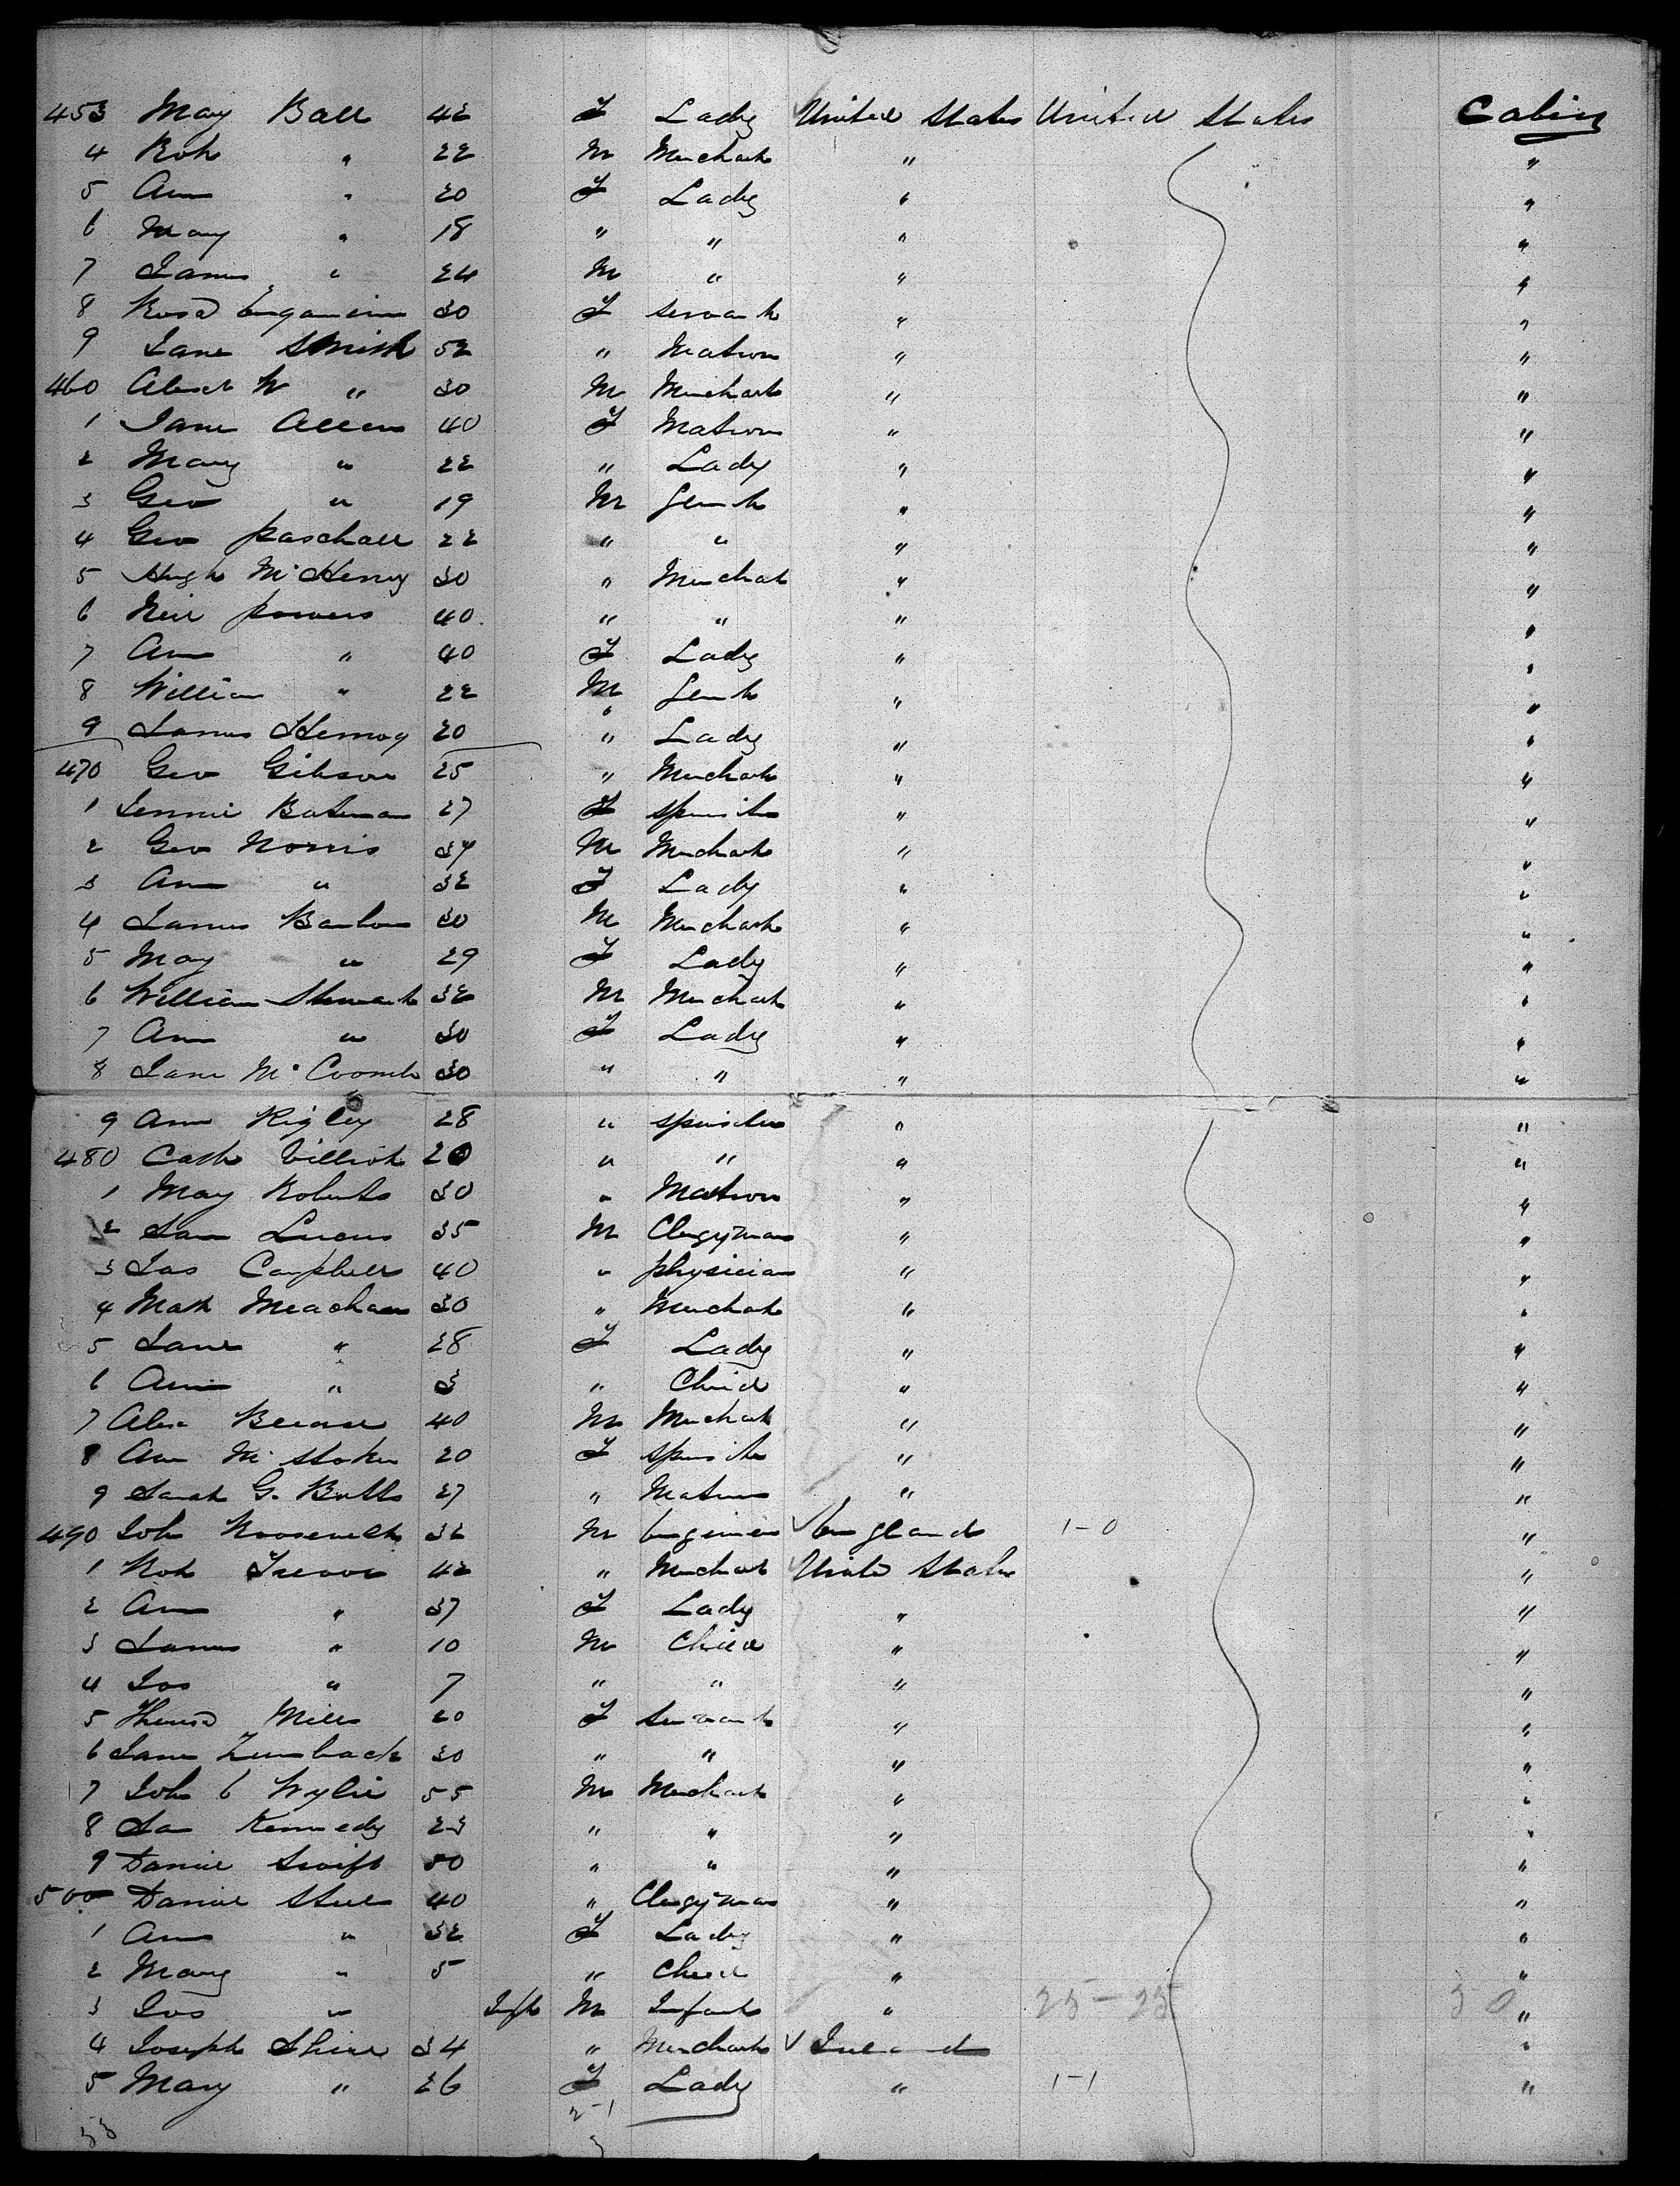 453 May Ball 42 F Lady United States United States Cabin
4 Robt " 22 M Merchant " "
5 Ann " 20 F Lady " "
6 Mary " 18 " " " "
7 James " 24 M " " "
8 Rosa 30 F Servant " "
9 Jane Smith 52 " Matron " "
460 Albert W " 30 M Merchant " "
1 Jane Allen 40 F Matron " "
2 Mary " 22 " Lady " "
3 Geo " 19 M Gent " "
4 Geo Paschall 22 " " " "
5 Hugh McHenry 30 " Merchant " "
6 Neil Powers 40 " " " "
7 Ann " 40 F Lady " "
8 William " 22 M Gent " "
9 James 20 " Lady " "
470 Geo Gibson 25 " Merchant " "
1 Jennie Bateman 27 F Spinster " "
2 Geo Norris 34 M Merchant " "
3 Ann " 32 F Lady " "
4 James Barlow 30 M Merchant " "
5 May " 29 F Lady " "
6 William Stewart 32 M Merchant " "
7 Ann " 30 F Lady " "
8 Jane McCoomb 30 " " " "
9 Ann Rigley 28 " Spinster " "
480 Cath Elliott 20 " " " "
1 May Roberts 30 " Matron " "
2 Sam Lucus 35 M Clergyman " "
3 Jas Campbell 40 " Physician " "
4 Math Meacham 30 " Merchant " "
5 Jane " 28 F Lady " "
6 Ann " 3 " Child " "
7 Alex 40 M Merchant " "
8 Ann McStoker 20 F Spinster " "
9 Sarah G. Butts 27 " Matron " "
490 Joh Roosevelt 32 M Engineer England 1-0 "
1 Robt Trevor 42 " Merchant United States "
2 Ann " 37 F Lady " "
3 James " 10 M Child " "
4 Jos " 7 " " " "
5 Theresa Miller 20 F Servant " "
6 Jane 30 " " " "
7 Joh E Wylie 55 M Merchant " "
8 Sa Kennedy 23 " " " "
9 Daniel Swift 50 " " " "
500 Daniel Steel 40 " Clergyman " "
1 Ann " 32 F Lady " "
2 Mary " 5 " Child " "
3 Jos " Inft M Infant " 25-25 50 "
4 Joseph Shiel 34 " Merchant Ireland "
5 Mary " 26 F Lady " 1-1 "
53 2-1